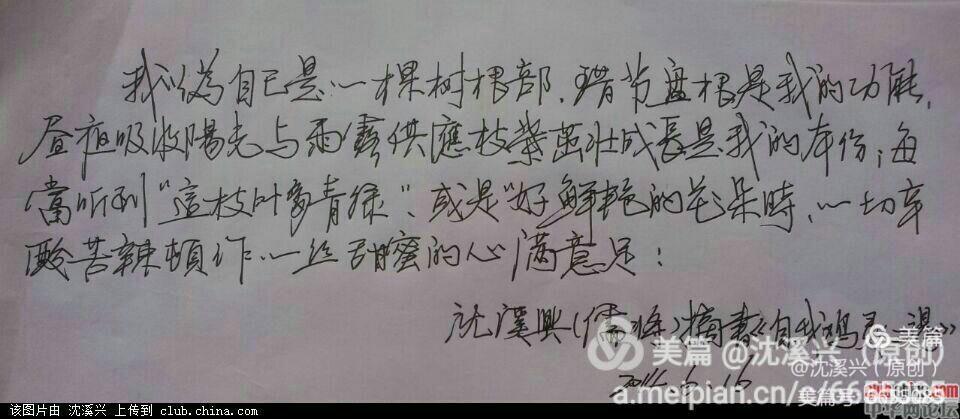 我以為自己是一棵树根部,错节盘根是我的功能,
昼夜吸收陽光与雨露供應枝葉茁壮成長是我的本份;每
當听到"這枝叶多青绿"、或是"好鮮艳的花朵時,一切辛
酸苦辣頓作一丝甜蜜的心满意足:
沈溪興(儒 )摘書《自我
美篇 @沈溪兴(原创)
@沈溪兴(原创)
美篇
a.meipian.cn/e/66
该图片由 沈溪兴 上传到 club.china.com
club.china.com